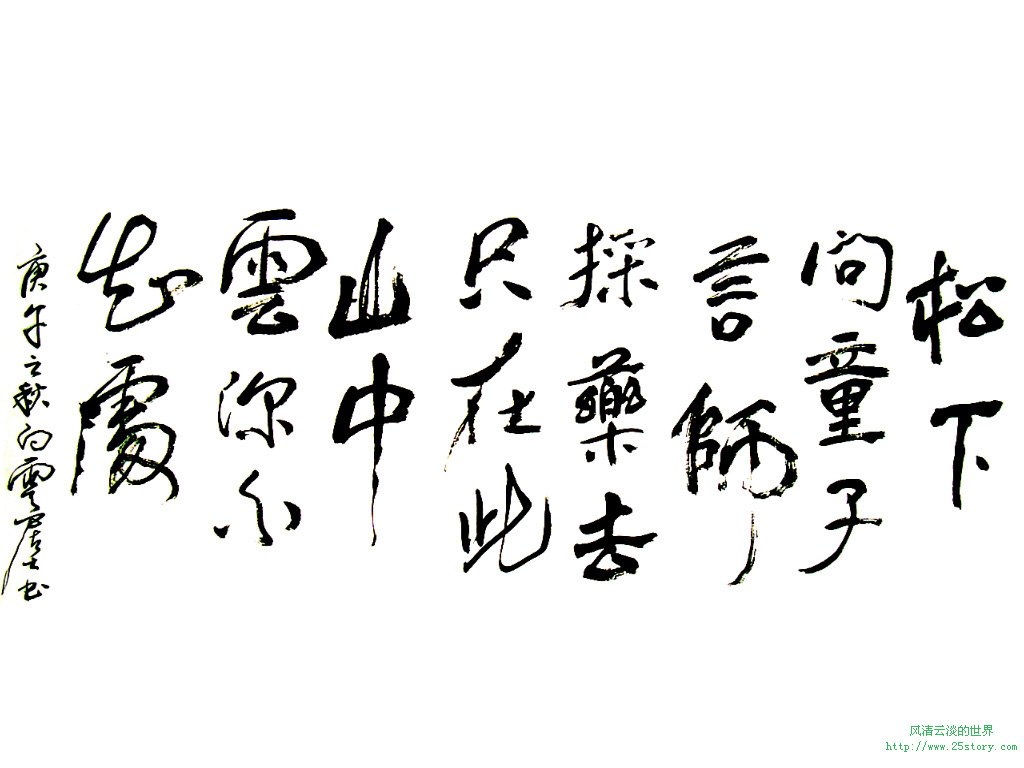 松下
問童子
言師
採藥去
只在此
山中
雲深不
知處
庚午之秋白雲居士书
风清云淡的世界
http://www.25story.com